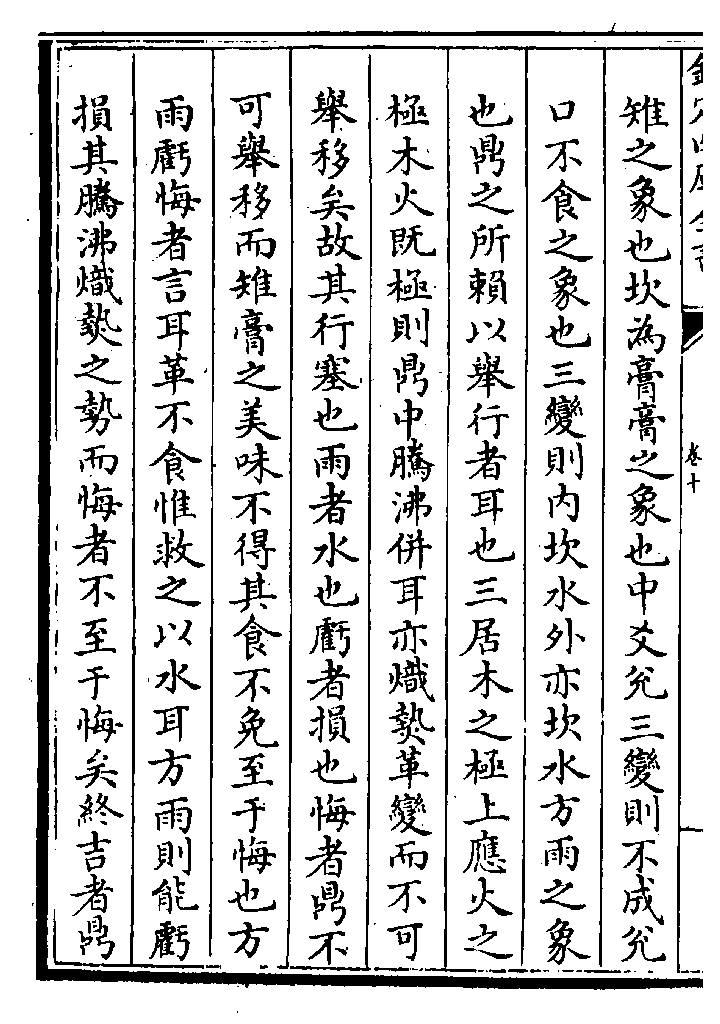 雉之象也坎為膏膏之象也中爻兊三變則不成兊
口不食之象也三變則內坎水外亦坎水方雨之象
也鼎之所賴以舉行者耳也三居木之極上應火之
極木火既極則鼎中騰沸併耳亦熾𤍠革變而不可
舉移矣故其行塞也雨者水也虧者損也悔者鼎不
可舉移而雉膏之美味不得其食不免至于悔也方
雨虧悔者言耳革不食惟救之以水耳方雨則能虧
損其騰沸熾𤍠之勢而悔者不至于悔矣終吉者鼎
卷十